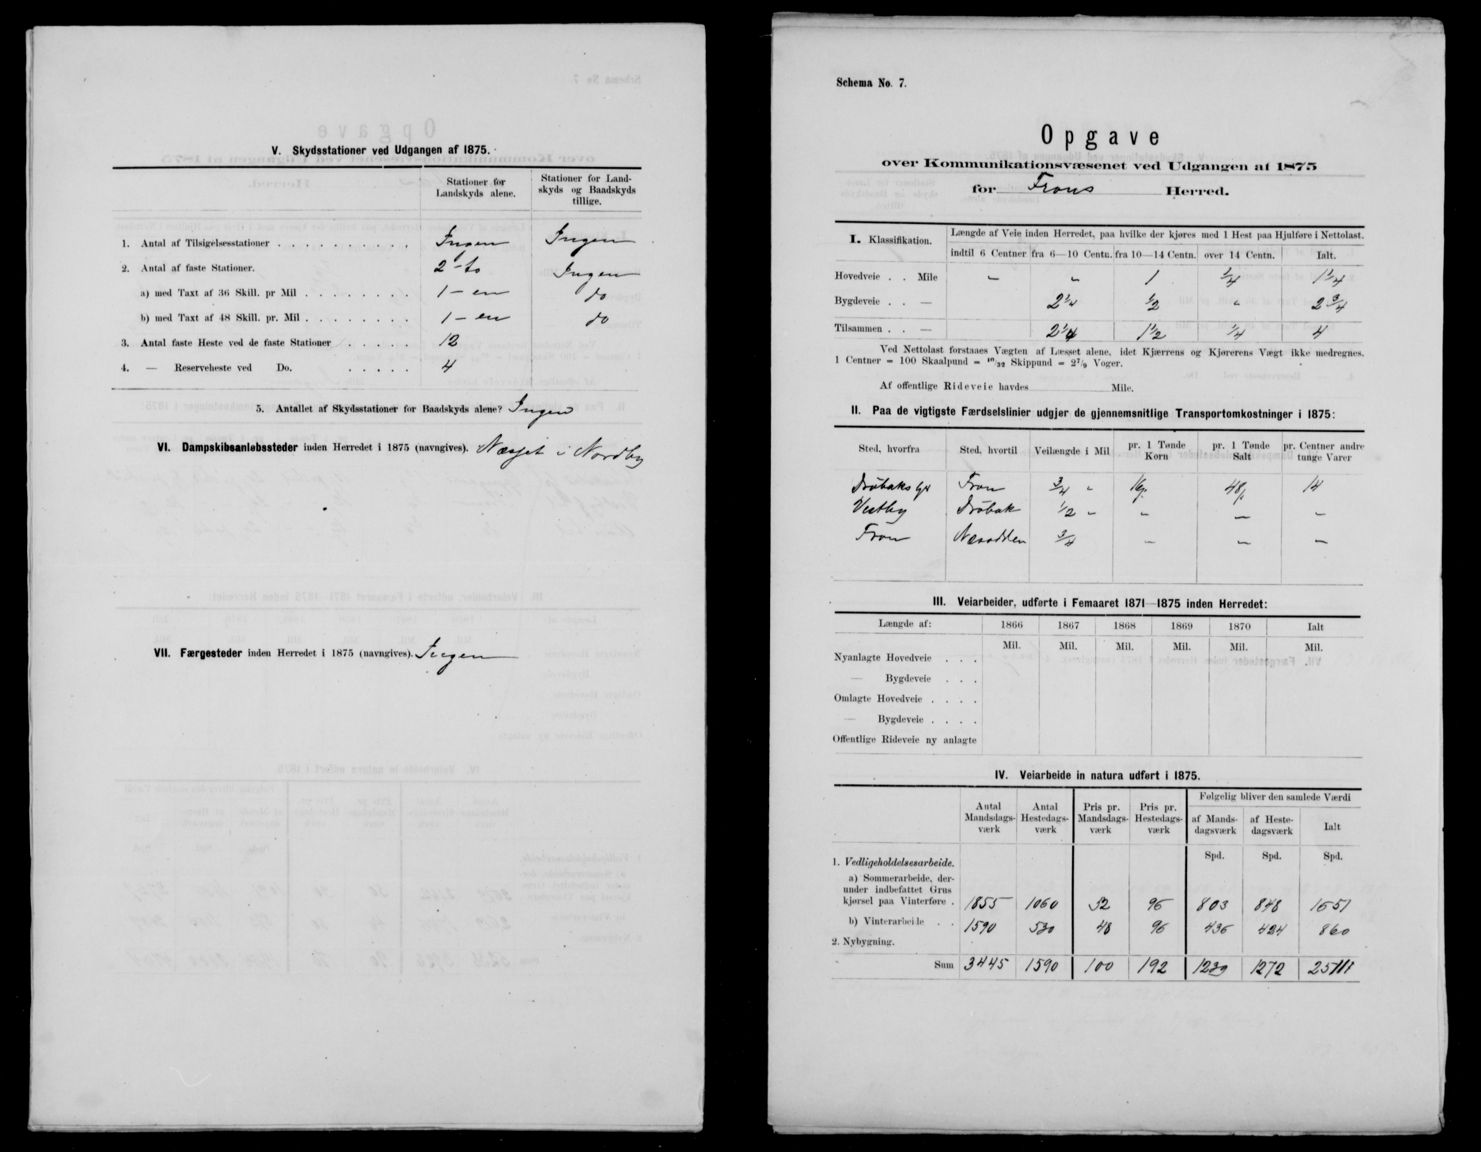 V. Skydsstationer ved Udgangen af 1875.
Stationer for Landskyds alene.
Stationer for Landskyds og Baadskyds tillige.
1. Antal af Tilsigelsesstationer . . . Ingen Ingen
2. Antal af faste Stationer. 2 - to Ingen
a) med Taxt af 36 Skill. pr Mil . . . 1 - en do
b) med Taxt af 48 Skill. pr. Mil . . . 1 - en do
3. Antal faste Heste ved de faste Stationer . . . 12
4. — Reserveheste ved Do. . . . 4
5. Antallet af Skydsstationer for Baadskyds alene? Ingen
VI. Dampskibsanløbssteder inden Herredet i 1875 (navngives). Næsset i Nordby
VII. Færgesteder inden Herredet i 1875 (navngives). Ingen
Schema No. 7.
Opgave
over Kommunikationsvæsenet ved Udgangen af 1875
for Frons Herred.
I. Klassifikation.
Længde af Veie inden Herredet, paa hvilke der kjøres med 1 Hest paa Hjulføre i Nettolast.
indtil 6 Centner fra 6—10 Centn. fra 10—14 Centn. over 14 Centn. Ialt.
Hovedveie . . Mile – „ 1 1/4 1 1/4
Bygdeveie . . — 2 1/4 1/2 „ 2 3/4
Tilsammen . . — 2 1/4 1 1/2 1/4 4
Ved Nettolast forstaaes Vægten af Læsset alene, idet Kjærrens og Kjørerens Vægt ikke medregnes.
1 Centner = 100 Skaalpund = 10/32 Skippund = 2 7/9 Voger.
Af offentlige Rideveie havdes Mile.
II. Paa de vigtigste Færdselslinier udgjør de gjennemsnitlige Transportomkostninger i 1875:
Sted, hvorfra Sted, hvortil Veilængde i Mil pr. 1 Tønde Korn pr. 1 Tønde Salt pr. Centner andre tunge Varer
Drøbaks Fron 3/4 „ 16 48 14
Vestby Drøbak 1/2 „ – – –
Fron Næsodden 3/4 – – –
III. Veiarbeider, udførte i Femaaret 1871—1875 inden Herredet:
Længde af: 1866 1867 1868 1869 1870 Ialt
Mil. Mil. Mil. Mil. Mil. Mil.
Nyanlagte Hovedveie . . .
— Bygdeveie . . .
Omlagte Hovedveie . . . .
— Bygdeveie . . . .
Offentlige Rideveie ny anlagte
IV. Veiarbeide in natura udført i 1875.
Antal Mandsdagsværk Antal Hestedagsværk Pris pr. Mandsdagsværk Pris pr. Hestedagsværk
Følgelig bliver den samlede Værdi
af Mandsdagsværk af Hestedagsværk Ialt
Spd. Spd. Spd.
1. Vedligeholdelsesarbeide.
a) Sommerarbeide, der-
under indbefattet Grus
kjørsel paa Vinterføre . 1855 1060 52 96 803 848 1651
b) Vinterarbeide . . 1590 530 48 96 436 424 860
2. Nybygning.
Sum 3445 1590 100 192 1239 1272 2511